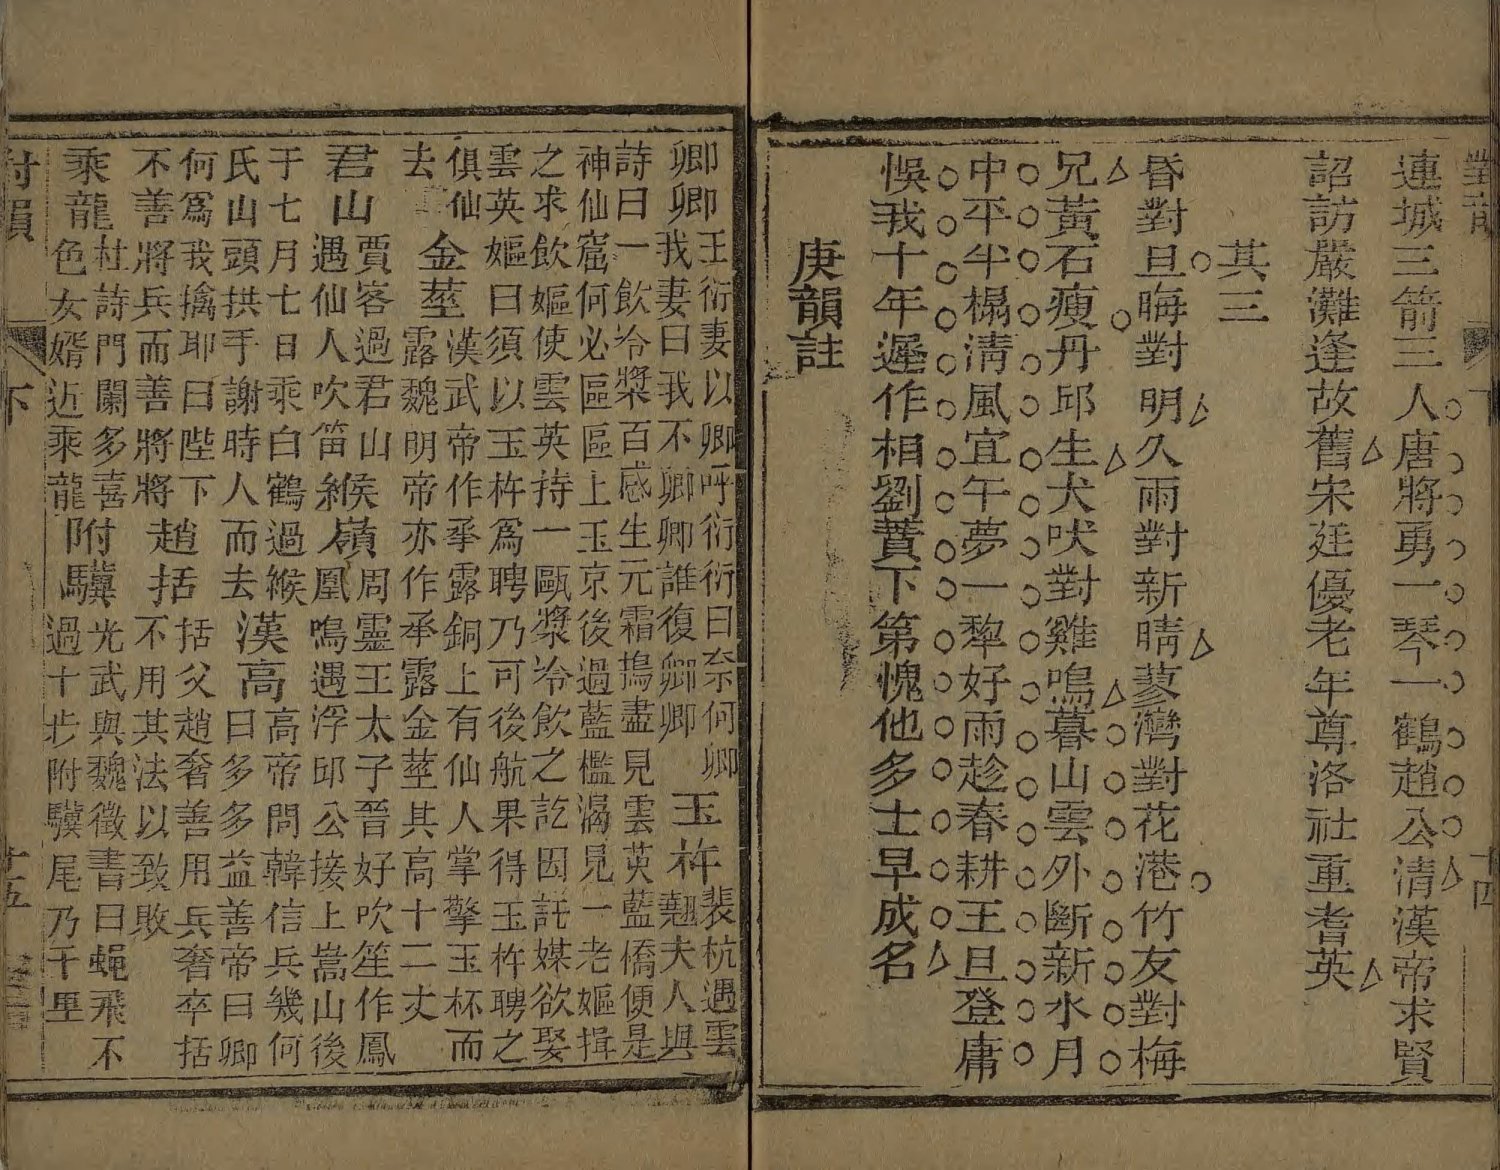 對韻
下
十四
連城三箭三人唐將勇一琴一鶴趙公清漢帝求賢
詔訪嚴灘逢故舊宋廷優老年尊洛社重耆英
其三
昏對旦晦對明久雨對新晴蓼灣對花港竹友對梅
兄黃石瘦丹邱生犬吠對雞鳴暮山雲外斷新水月
中平半榻清風宜午夢一犂好雨趁春耕王旦登庸
悞我十年遲作相劉蕡下第愧他多士早成名
庚韻註
卿卿王衍妻以卿呼衍衍曰奈何卿
我妻曰我不卿卿誰復卿卿玉杵裴杭遇雲
翹夫人與
詩曰一飲冷漿百感生元霜搗盡見雲英藍僑便是
神仙窟何必區區上玉京後過藍檻渴見一老嫗揖
之求飲嫗使雲英持一甌漿冷飲之訖因託媒欲娶
雲英嫗曰須以玉杵爲聘乃可後航果得玉杵聘之
俱仙
去金莖漢武帝作承露銅上有仙人掌擎玉杯而
露魏明帝亦作承露金莖其高十二丈
君山賈客過君山
遇仙人吹笛緱嶺周靈王太子晉好吹笙作鳳
凰鳴遇浮邱公接上嵩山後
于七月七日乘白鶴過緱
氏山頭拱手謝時人而去漢高高帝問韓信兵幾何
曰多多益善帝曰卿
何爲我擒耶曰陛下
不善將兵而善將將趙括括父趙奢善用兵奢卒括
不用其法以致敗
乘龍杜詩門闌多喜
色女婿近乘龍附驥光武與魏徵書曰蝇飛不
過十步附驥尾乃千里
對韻
下
十五